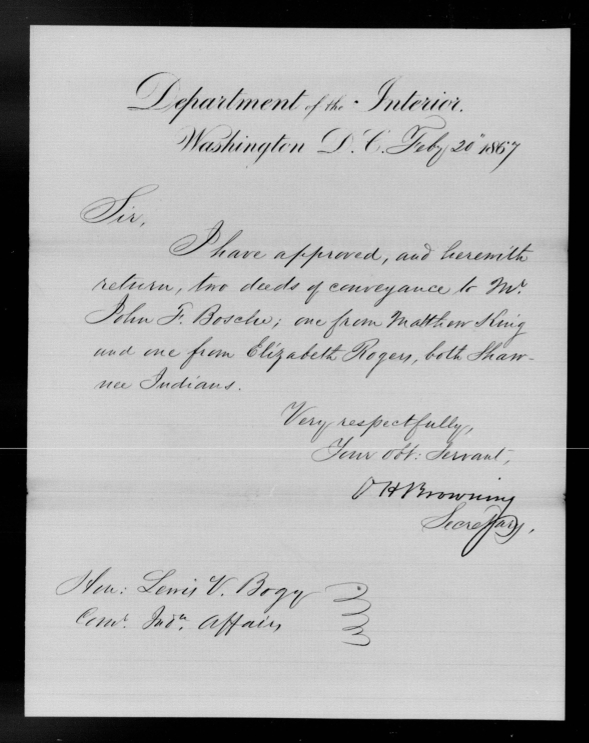 Department of the Interior.
Washington D. C. Feby 20" 1867
Sir,
I have approved, and herewith
return, two deeds of conveyance to Mr.
John F. Bosche; one from Matthew King
and one from Elizabeth Rogers, both Shaw-
nee Indians.
Very respectfully,
Your obt: Servant,
O H Browning
Secretary.
Hon: Lewis V. Bogy
Comr. Indn. Affairs